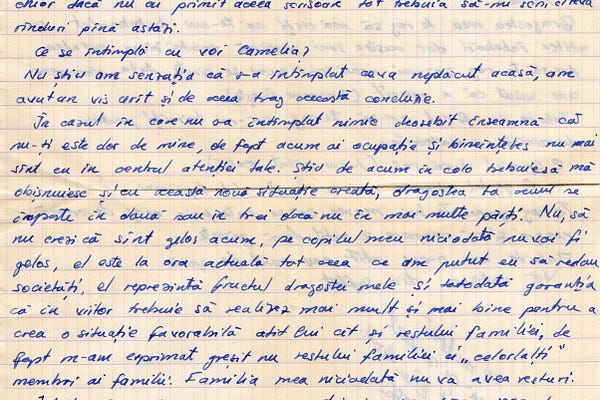 chiar dacă nu ai primit acea scrisoare tot trebuia să-mi scrii cîteva
rînduri pînă astăzi.
Ce se întîmplă cu voi Camelia?
Nu știu am senzația că s-a întîmplat ceva neplăcut acasă, am
avut un vis urît și de aceea trag această concluzie.
În cazul în care nu s-a întîmplat nimic deosebit înseamnă că
nu-ți este dor de mine, de fapt acum ai ocupație și bineînțeles nu mai
sînt eu în centrul atenției tale. Știu de acum în colo trebuie să mă
obișnuiesc și cu această nouă situație creată, dragostea ta acum se
împarte în două sau în trei dacă nu în mai multe părți. Nu, să
nu crezi că sînt gelos acum, pe copilul meu niciodată nu voi fi
gelos, el este la ora actuală tot ceea ce am putut eu să redau
societății, el reprezintă fructul dragostei mele și totodată garanția
că în viitor trebuie să realizez mai mult și mai bine pentru a
crea o situație favorabilă atît lui cît și restului familiei, de
fapt m-am exprimat greșit nu restului familiei ci „celorlalți"
membri ai familii. Familia mea niciodată nu va avea resturi.